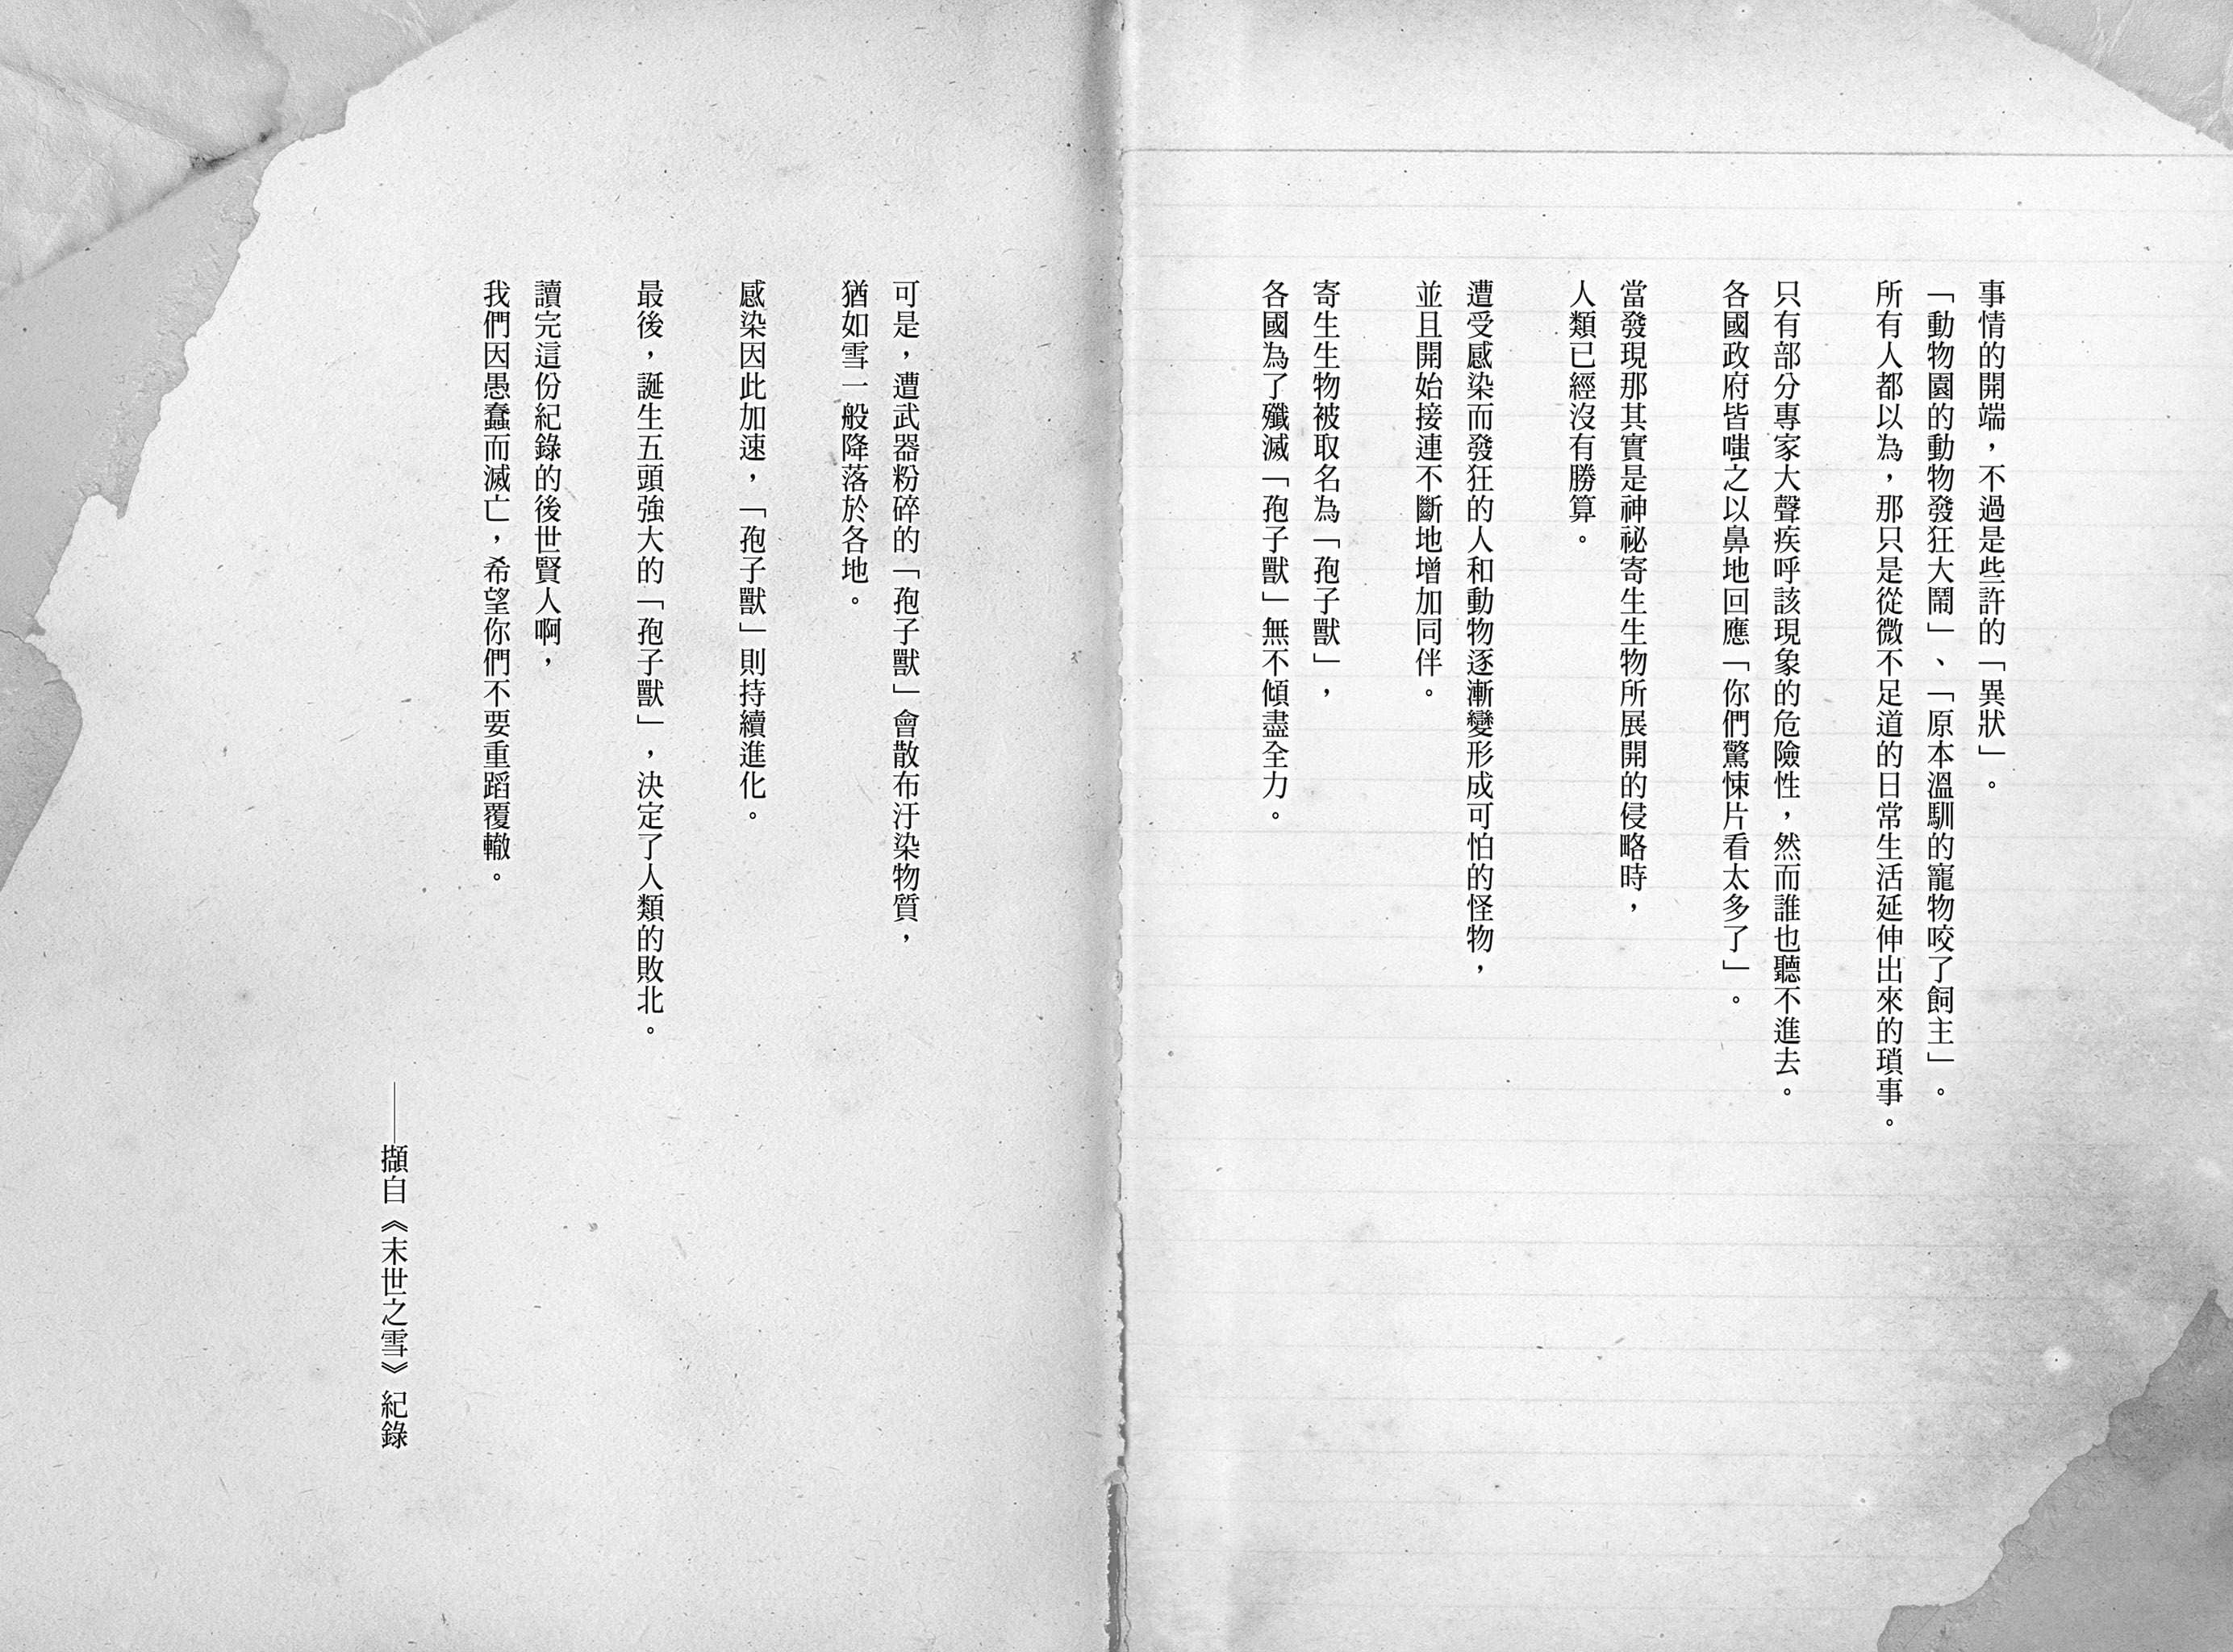 事情的開端，不過是些許的「異狀」。
「動物園的動物發狂大鬧」、「原本溫馴的寵物咬了飼主」。
所有人都以為，那只是從微不足道的日常生活延伸出來的瑣事。
只有部分專家大聲疾呼該現象的危險性，然而誰也聽不進去。
各國政府皆嗤之以鼻地回應「你們驚悚片看太多了」。
當發現那其實是神祕寄生生物所展開的侵略時，
人類已經沒有勝算。
遭受感染而發狂的人和動物逐漸變形成可怕的怪物，
並且開始接連不斷地增加同伴。
寄生生物被取名為「孢子獸」，
各國為了殲滅「孢子獸」無不傾盡全力。
可是，遭武器粉碎的「孢子獸」會散布汙染物質，
猶如雪一般降落於各地。
感染因此加速，「孢子獸」則持續進化。
最後，誕生五頭強大的「孢子獸」，決定了人類的敗北。
讀完這份紀錄的後世賢人啊，
我們因愚蠢而滅亡，希望你們不要重蹈覆轍。
——擷自《末世之雪》紀錄